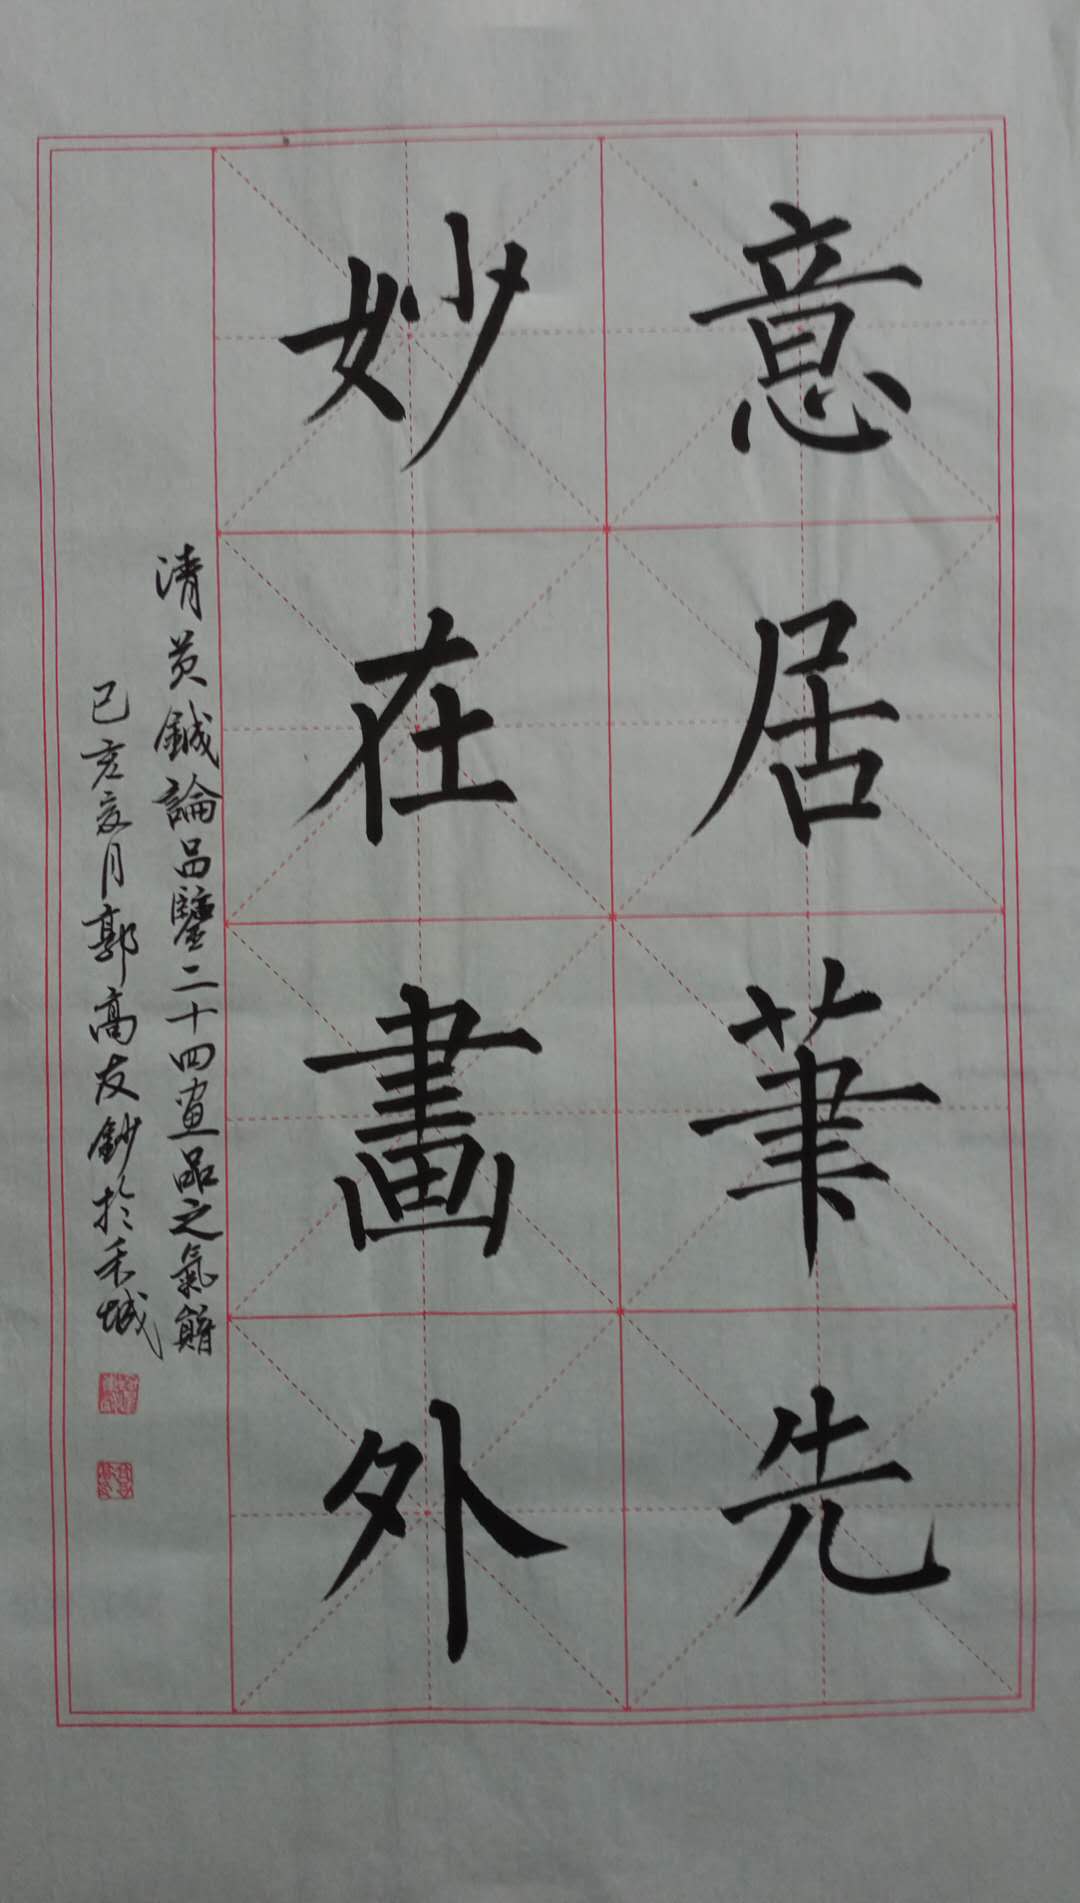 意居筆先
妙在畫外
清黄鉞論品鑒二十四畫品之氣韻
己亥亥月郭高友鈔於禾城